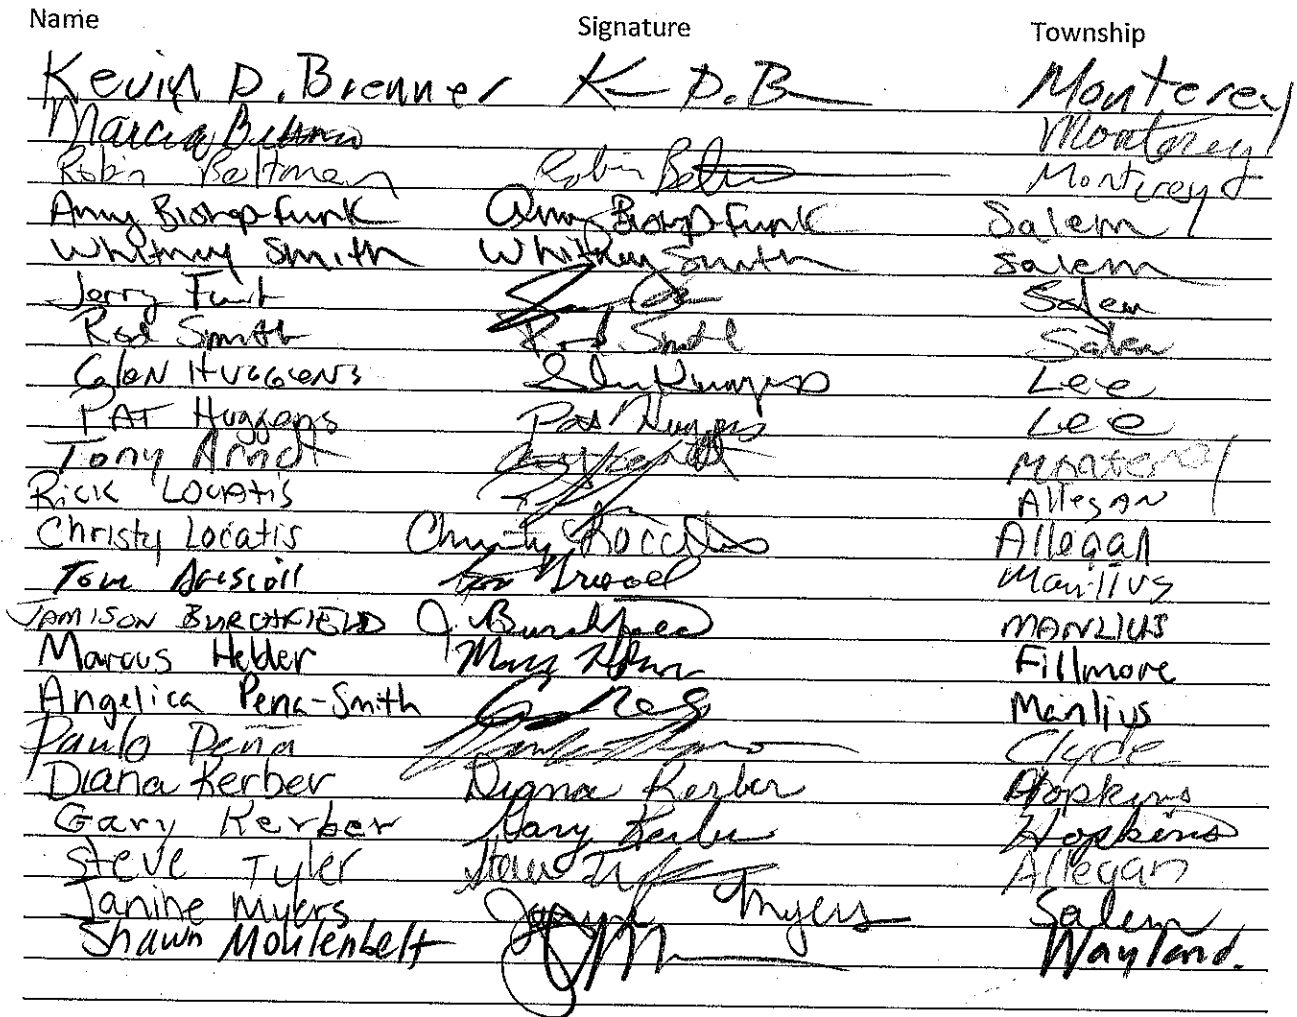 Name Signature Township
Kevin D. Brenner K D.B Monterey
Marcia Monterey
Robin Beltman Robin Monterey
Amy Bishop-Funk Amy Bishop-Funk Salem
Whitney Smith Whitney Smith Salem
Jerry Salem
Rod Smith Rod Smith Salem
Glen Huggens Lee
PAT Huggens Pat Huggens Lee
Tony Arndt Monterey
Rick Locatis Allegan
Christy Locatis Christy Locatis Allegan
Tom Driscoll Tom Driscoll Manlius
JAMISON BURCHFIELD J. Burchfield MANLIUS
Marcus Helder Fillmore
Angelica Pena-Smith Manlius
Paulo Peña Clyde
Diana Kerber Diana Kerber Hopkins
Gary Kerber Gary Kerber Hopkins
Steve Tyler Steve Allegan
Janine Myers Janine Myers Salem
Shawn Mohlenbelt Wayland.